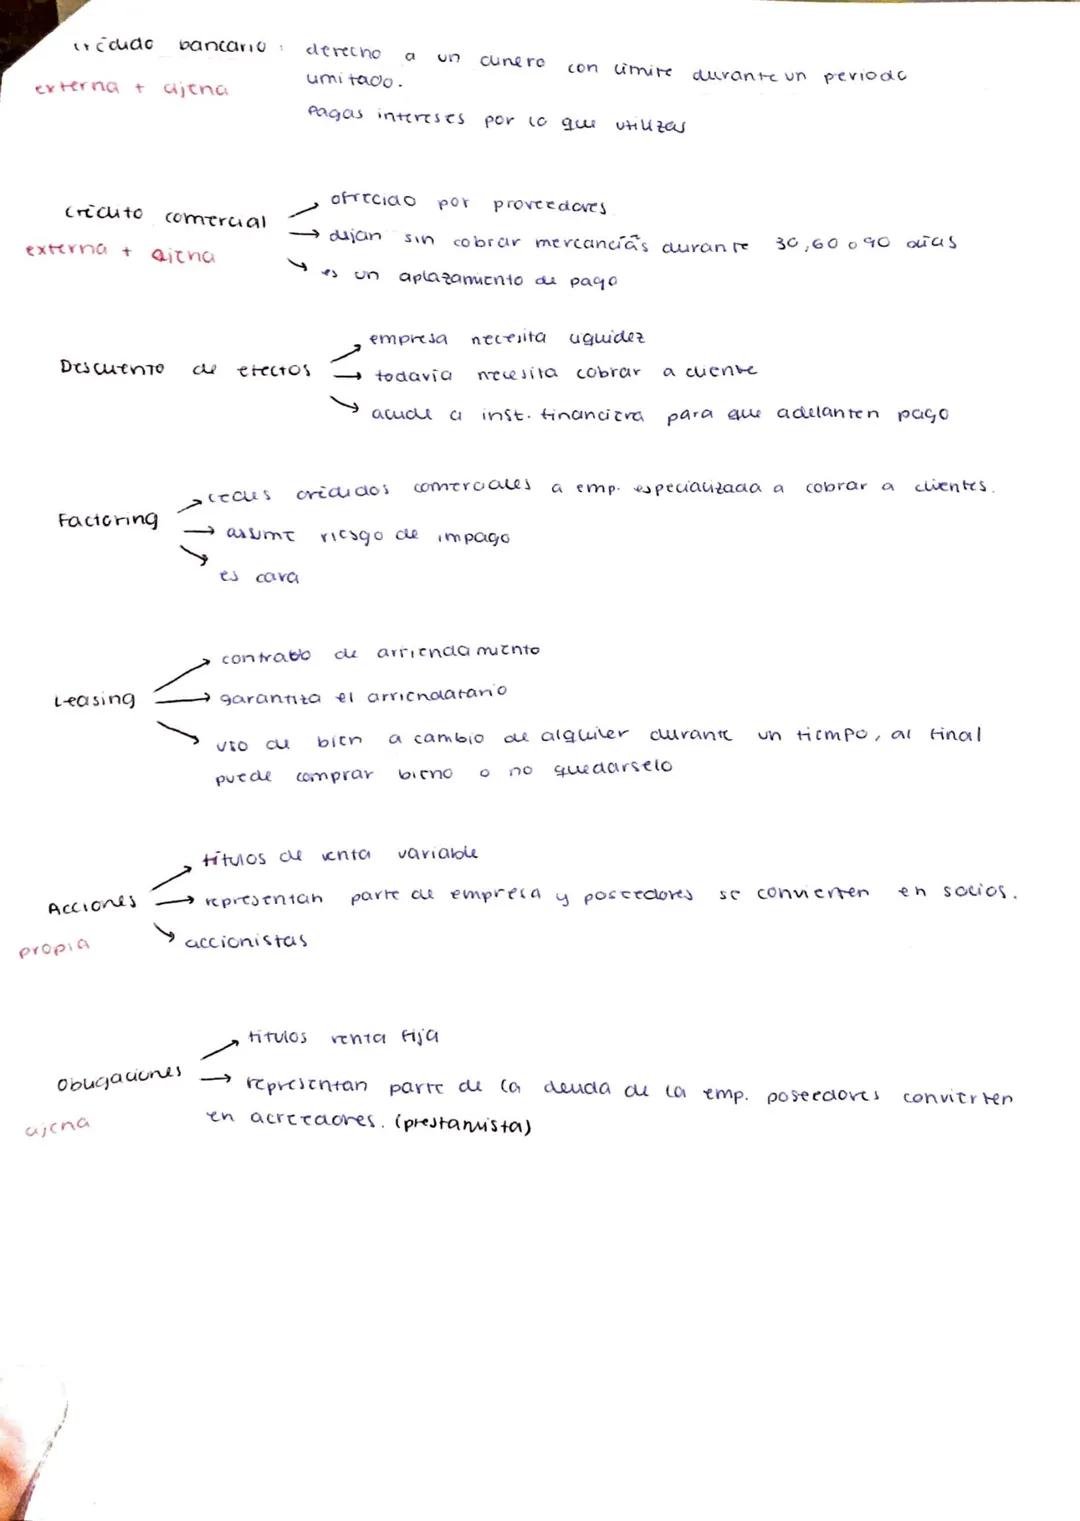 crédito bancario : derecho a un dinero con límite durante un periodo
externa + ajena
limitado.
Pagas intereses por lo que utilizas
ofrecido por proveedores
crédito comercial
dejan sin cobrar mercancías durante 30,60 o 90 días
externa + ajena
es un aplazamiento de pago
empresa necesita liquidez
Descuento de efectos
todavía necesita cobrar a cliente
acude a inst. financiera para que adelanten pago
cedes créditos comerciales a emp. especializada a cobrar a clientes.
Factoring
asume riesgo de impago
es cara
contrato de arriendamiento
Leasing
garantiza el arriendatario
uso de bien a cambio de alquiler durante un tiempo, al final
puede comprar bieno o no quedarselo
títulos de renta variable
Acciones
representan parte de empresa y poseedores se convierten en socios.
propia
accionistas
títulos renta fija
Obligaciones
representan parte de la deuda de la emp. poseedores convierten
ajena
en acreedores. (prestamista)